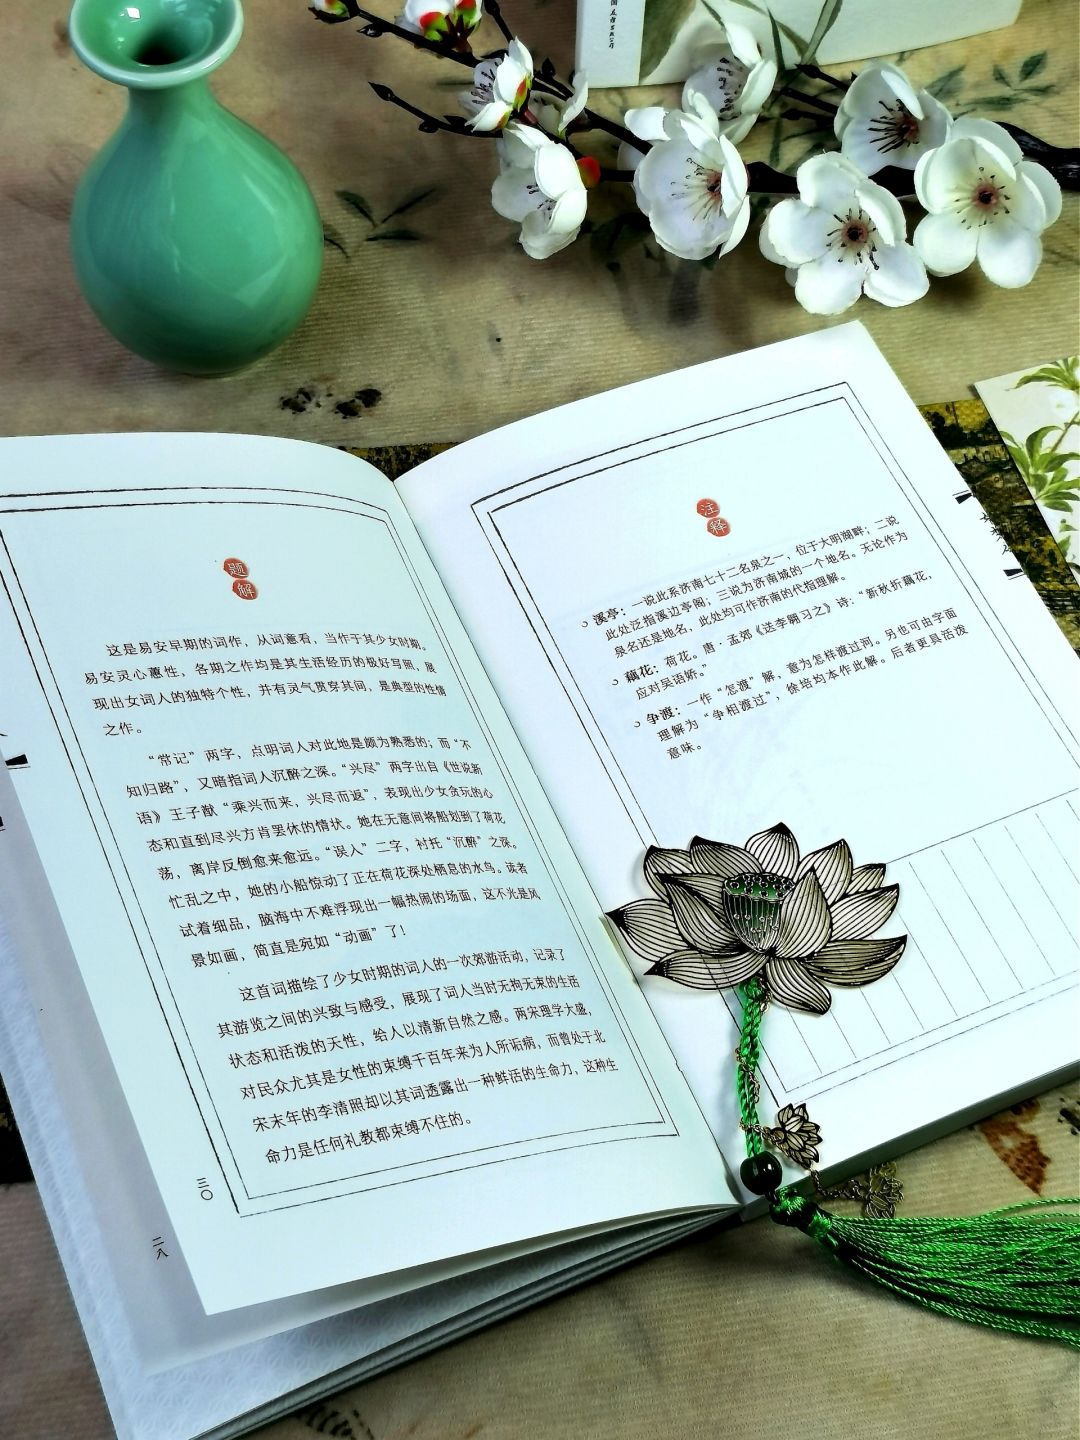 题解
这是易安早期的词作，从词意看，当作于其少女时期。
易安灵心蕙性，各期之作均是其生活经历的极好写照，展
现出女词人的独特个性，并有灵气贯穿其间，是典型的性情
之作。
“常记”两字，点明词人对此地是颇为熟悉的；而“不
知归路”，又暗指词人沉醉之深。“兴尽”两字出自《世说新
语》王子猷“乘兴而来，兴尽而返”，表现出少女贪玩的心
态和直到尽兴方肯罢休的情状。她在无意间将船划到了荷花
荡，离岸反倒愈来愈远。“误人”二字，衬托“沉醉”之深。
忙乱之中，她的小船惊动了正在荷花深处栖息的水鸟。读者
试着细品，脑海中不难浮现出一幅热闹的场面，这不光是风
景如画，简直是宛如“动画”了！
这首词描绘了少女时期的词人的一次郊游活动，记录了
其游览之间的兴致与感受，展现了词人当时无拘无束的生活
状态和活泼的天性，给人以清新自然之感。两宋理学大盛，
对民众尤其是女性的束缚千百年来为人所诟病，而曾处于北
宋末年的李清照却以其词透露出一种鲜活的生命力，这种生
命力是任何礼教都束缚不住的。
三〇
二八
注释
溪亭：一说此系济南七十二名泉之一，位于大明湖畔；二说
此处泛指溪边亭阁；三说为济南城的一个地名。无论作为
泉名还是地名，此处均可作济南的代指理解。
藕花：荷花。唐·孟郊《送李翱习之》诗：“新秋折藕花，
应对吴语娇。”
争渡：一作“怎渡”解，意为怎样渡过河。另也可由字面
理解为“争相渡过”，徐培均本作此解。后者更具活泼
意味。